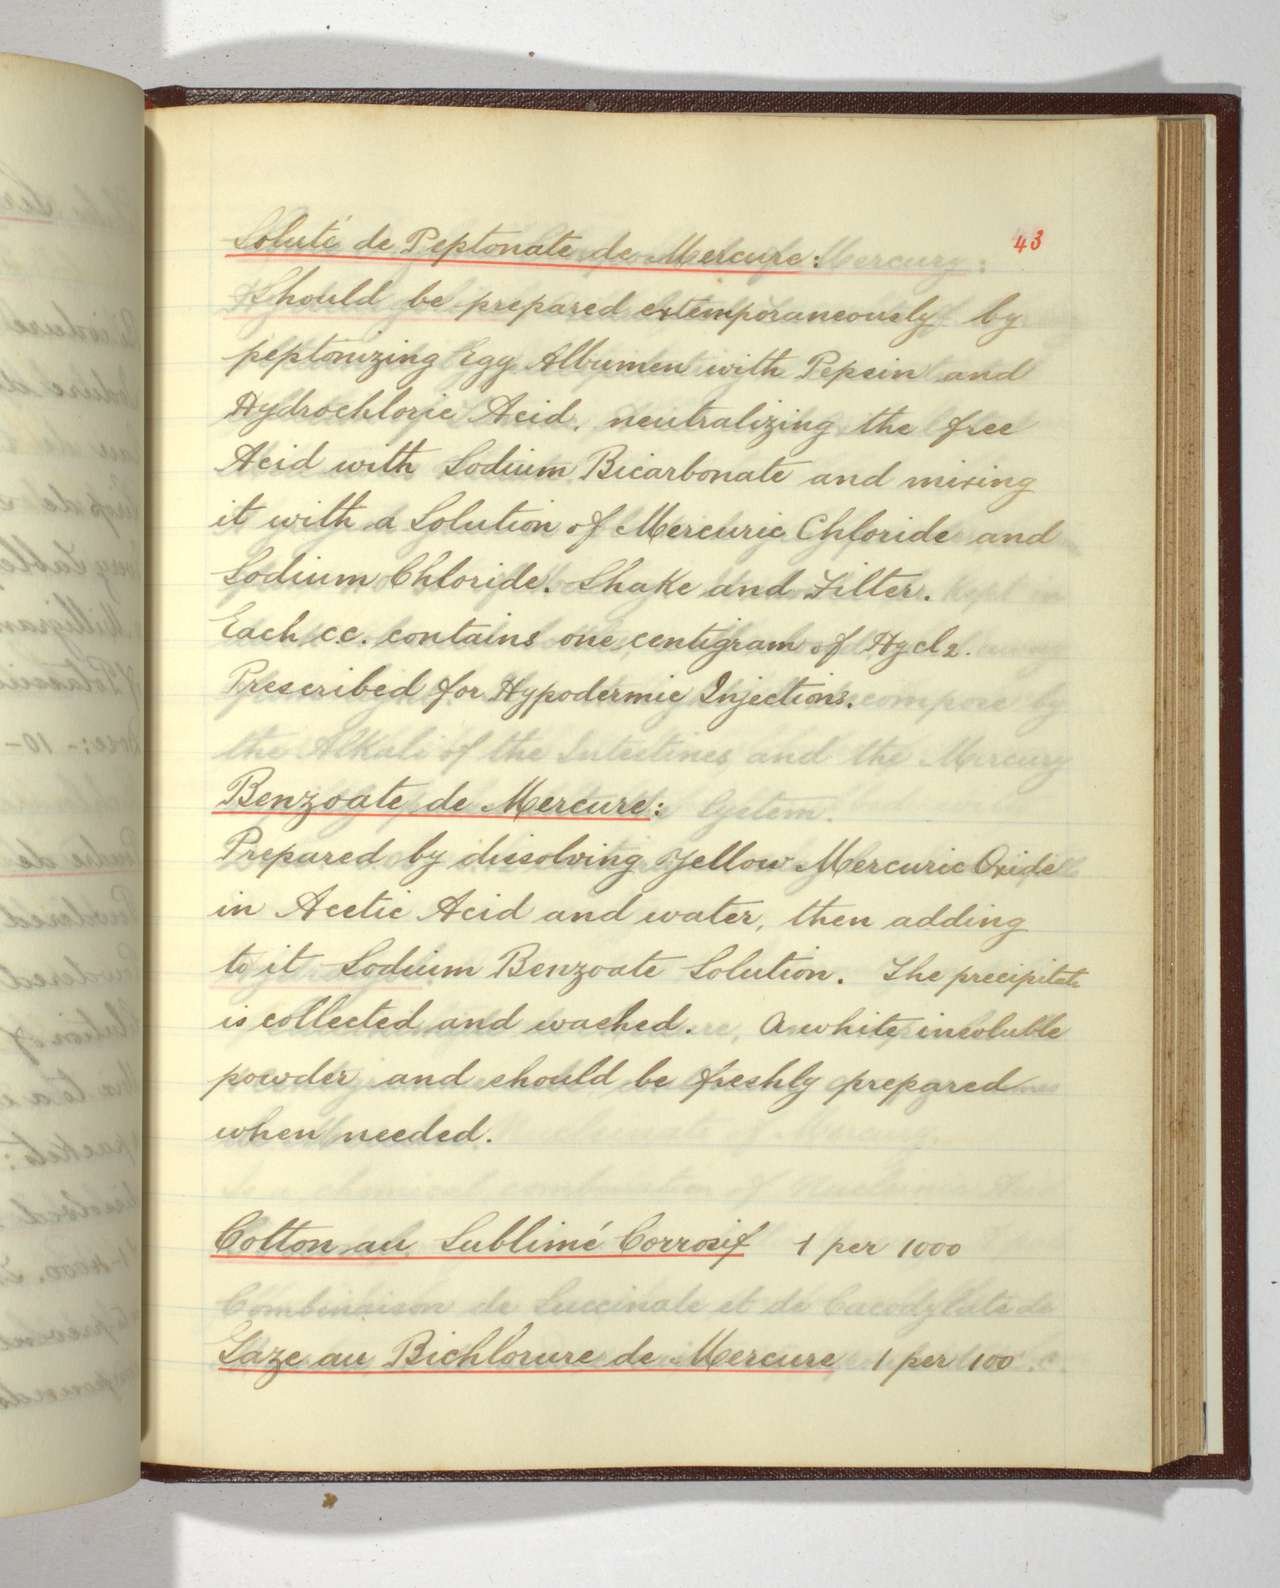 43
Soluté de Peptonate de Mercure:
Should be prepared extemporaneously by
peptonizing Egg Albumen with Pepsin and
Hydrochloric Acid, neutralizing the free
Acid with Sodium Bicarbonate and mixing
it with a Solution of Mercuric Chloride and
Sodium Chloride. Shake and Filter.
Each cc. contains one centigram of Hgcl2.
Prescribed for Hypodermic Injections.
Benzoate de Mercure:
Prepared by dissolving Yellow Mercuric Oxide
in Acetic Acid and water, then adding
to it Sodium Benzoate Solution. The precipitate
is collected and washed. A white insoluble
powder and should be freshly prepared
when needed.
Cotton au Sublimé Corrosif 1 per 1000
Gaze au Bichlorure de Mercure 1 per 100